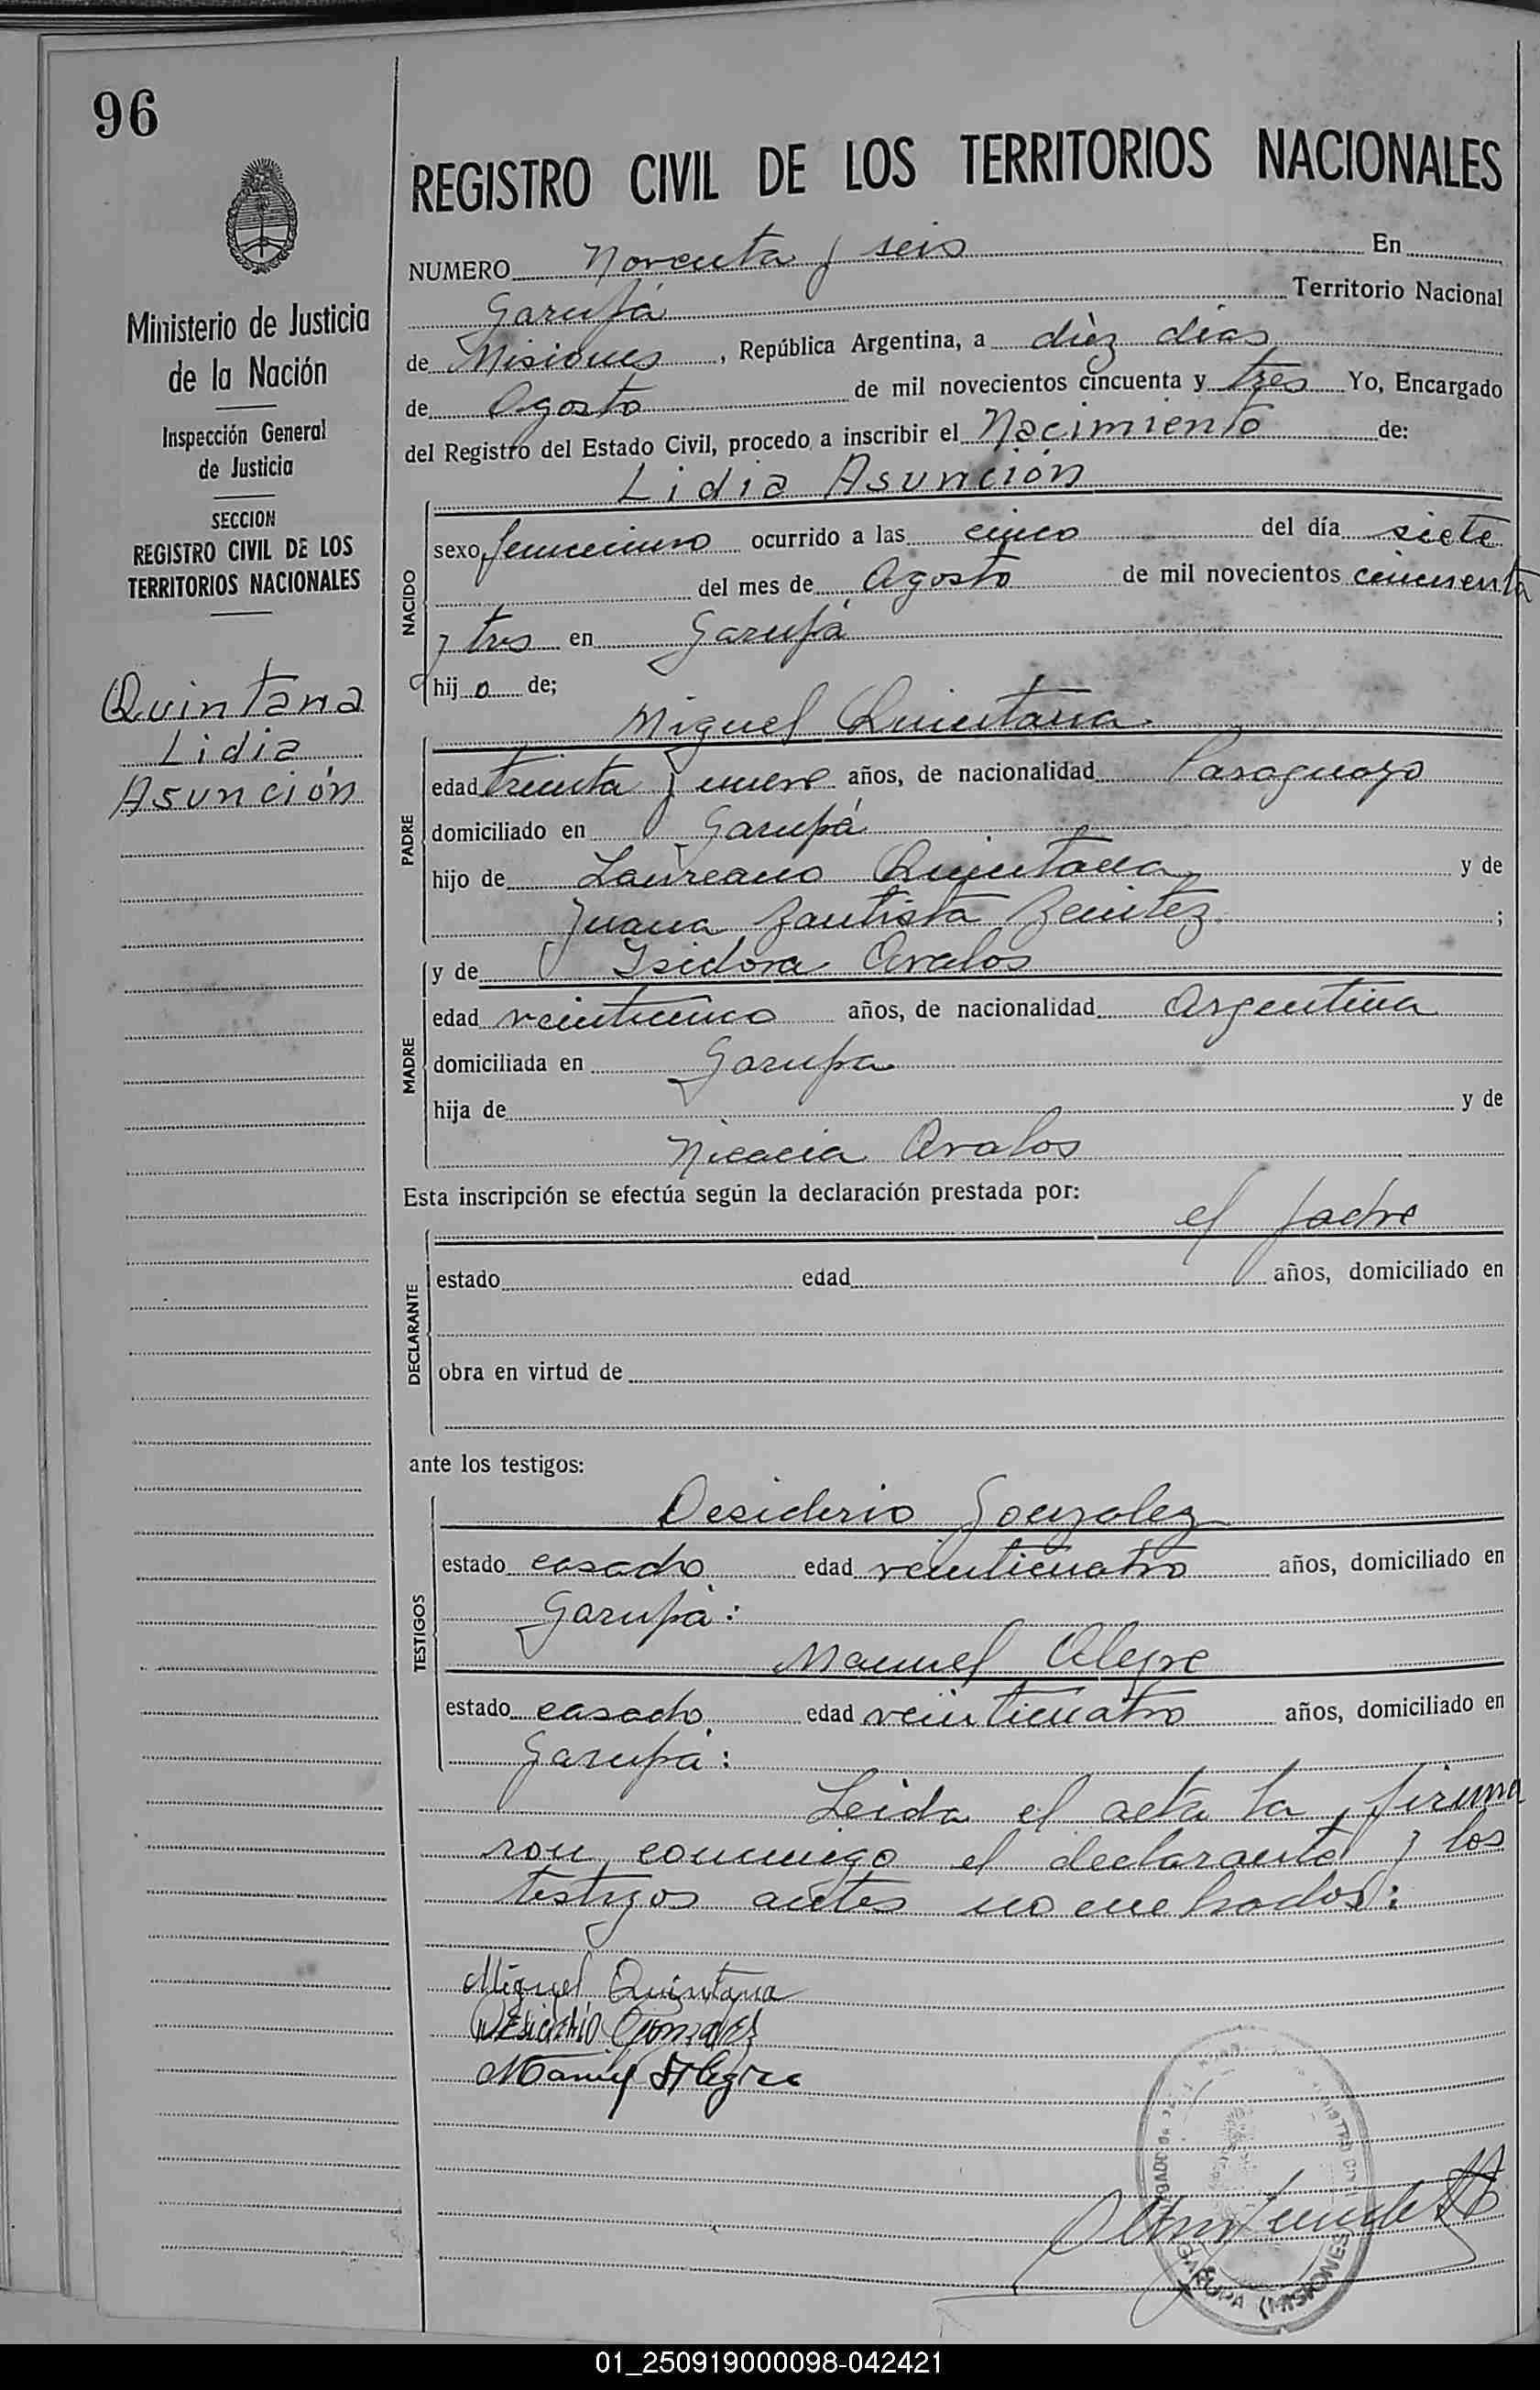 96
REGISTRO CIVIL DE LOS TERRITORIOS NACIONALES
Ministerio de Justicia
de la Nación
Inspección General
de Justicia
SECCION
REGISTRO CIVIL DE LOS
TERRITORIOS NACIONALES
Quintana
Lidia
Asunción
NUMERO Noventa y seis En
Garupá Territorio Nacional
de Misiones, República Argentina, a dièz días
de Agosto de mil novecientos cincuenta y tres Yo, Encargado
del Registro del Estado Civil, procedo a inscribir el Nacimiento de:
Lidia Asunción
NACIDO
sexo femenino ocurrido a las cinco del día siete
del mes de Agosto de mil novecientos cincuenta
y tres en Garupá
hij a de;
Miguel Quintana
PADRE
edad treinta y nueve años, de nacionalidad Paraguayo
domiciliado en Garupá
hijo de Laureano Quintana y de
Juana Bautista Benitez ;
MADRE
y de Isidora Avalos
edad veinticinco años, de nacionalidad Argentina
domiciliada en Garupa
hija de y de
Nicacia Avalos
Esta inscripción se efectúa según la declaración prestada por:
el padre
DECLARANTE
estado edad años, domiciliado en
obra en virtud de
ante los testigos:
TESTIGOS
Desiderio Gonzalez
estado casado edad veinticuatro años, domiciliado en
Garupá:
Manuel Alegre
estado casado edad veinticuatro años, domiciliado en
Garupá:
Leida el acta la firma
ron conmigo el declarante y los
testigos antes nombrados:
Miguel Quintana
Desiderio Gonzalez
Manuel Alegre
GARUPA (MISIONES)
01_250919000098-042421